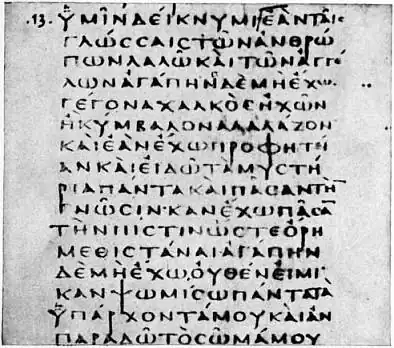 .13. ΫΜΙΝΔΕΙΚΝΥΜΙ·ΕΑΝΤΑΙϹ
ΓΛΩϹϹΑΙϹΤΩΝΑΝΘΡΩ
ΠΩΝΛΑΛΩΚΑΙΤΩΝΑΓΓΕ
ΛΩΝΑΓΑΠΗΝΔΕΜΗΕΧΩ
ΓΕΓΟΝΑΧΑΛΚΟϹΗΧΩΝ
ΗΚΥΜΒΑΛΟΝΑΛΑΛΑΖΟΝ
ΚΑΙΕΑΝΕΧΩΠΡΟΦΗΤΕΙ
ΑΝΚΑΙΕΙΔΩΤΑΜΥϹΤΗ
ΡΙΑΠΑΝΤΑΚΑΙΠΑϹΑΝΤΗΝ
ΓΝΩϹΙΝ·ΚΑΝΕΧΩΠΑϹΑ̅
ΤΗΝΠΙϹΤΙΝΩϹΤΕΟΡΗ
ΜΕΘΙϹΤΑΝΑΙ·ΑΓΑΠΗΝ
ΔΕΜΗΕΧΩ,ΟΥΘΕΝΕΙΜΙ
ΚΑΝΨΩΜΙϹΩΠΑΝΤΑΤΑ
ΫΠΑΡΧΟΝΤΑΜΟΥΚΑΙΑΝ
ΠΑΡΑΔΩΤΟϹΩΜΑΜΟΥ